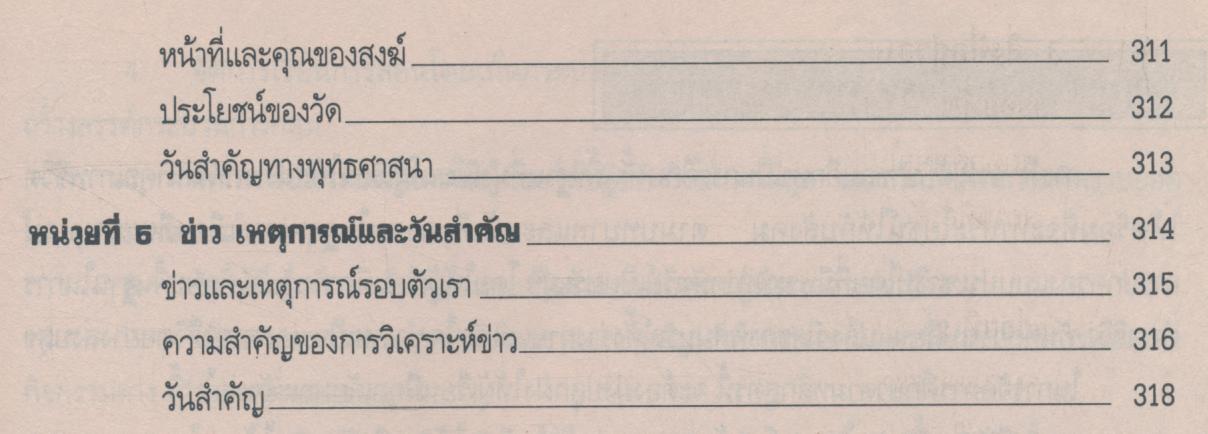 หน้าที่และคุณของสงฆ์ 311
ประโยชน์ของวัด 312
วันสำคัญทางพุทธศาสนา 313
หน่วยที่ 6 ข่าว เหตุการณ์และวันสำคัญ 314
ข่าวและเหตุการณ์รอบตัวเรา 315
ความสำคัญของการวิเคราะห์ข่าว 316
วันสำคัญ 318